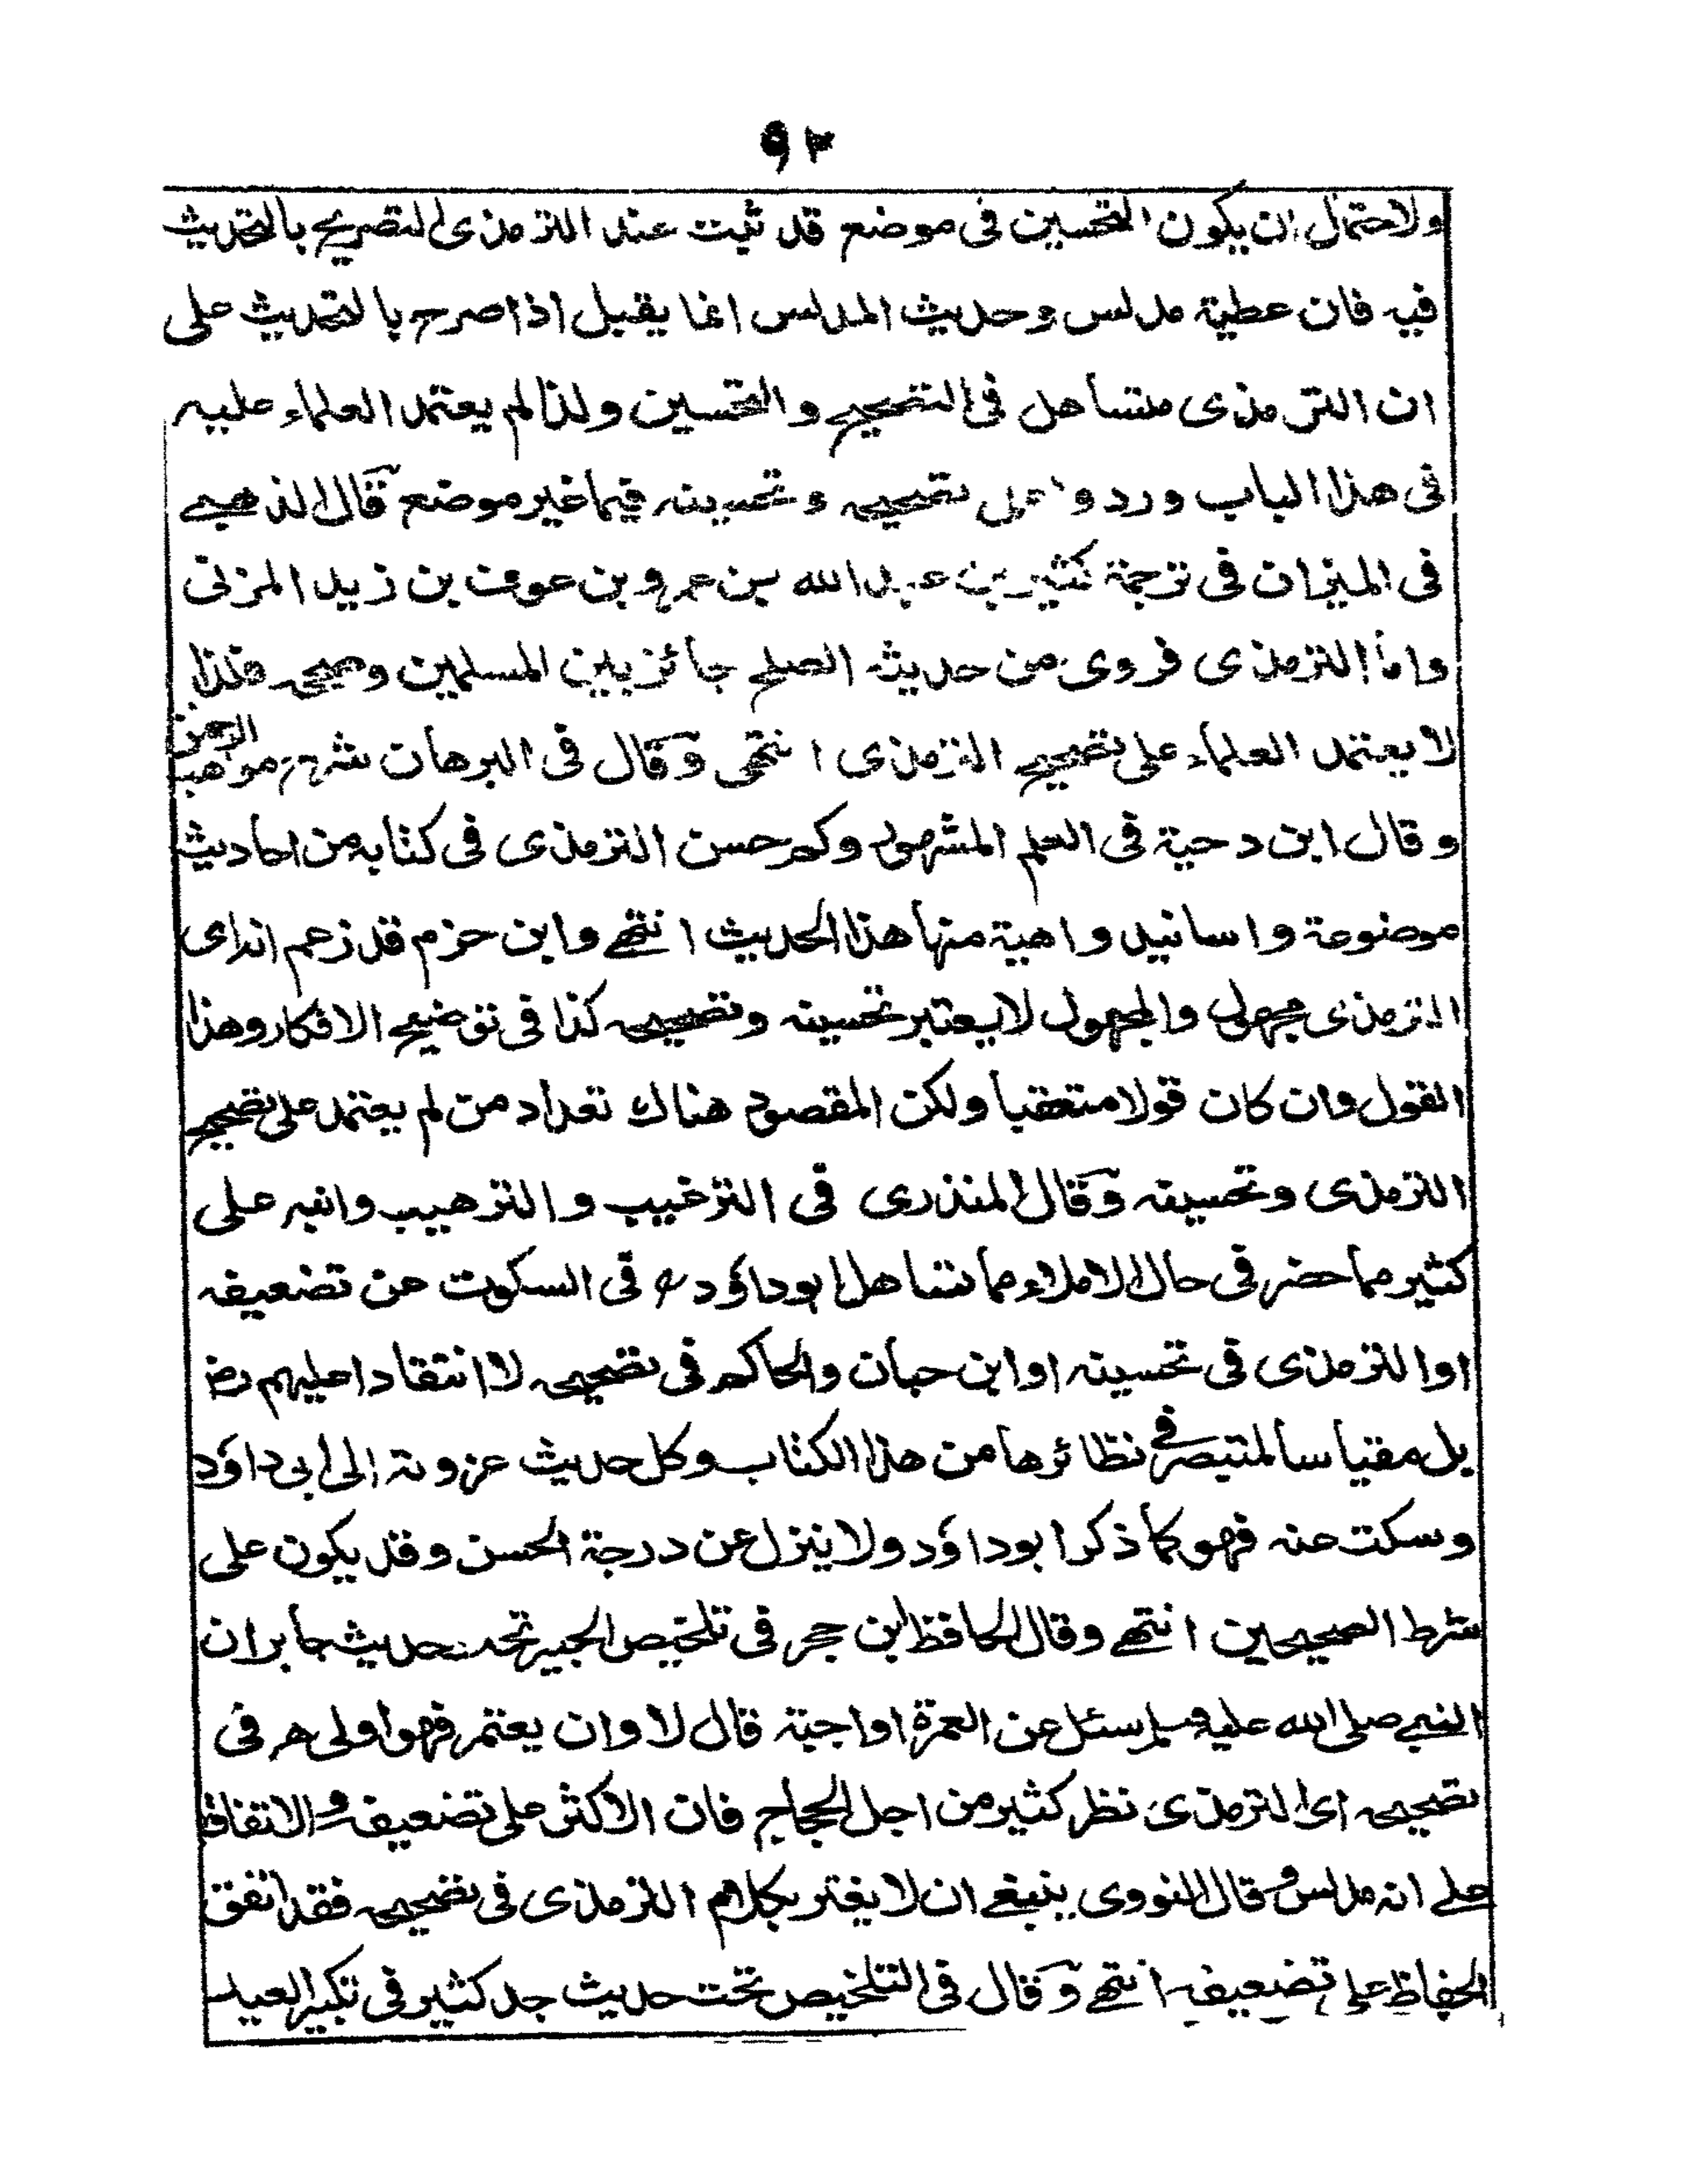 ٩٢
ولاحتمال ان يكون التحسين فى موضع قد ثبت عند الترمذى التصريح بالتحديث
فيه فان عطية مدلس وحديث المدلس انما يقبل اذا صرح بالتحديث على
ان الترمذى متساهل فى التصحيح والتحسين ولذا لم يعتمد العلماء عليه
فى هذا الباب وردوا على تصحيحه وتحسينه فيما غير موضع قال الذهبى
فى الميزان فى ترجمة كثير بن عبد الله بن عمرو بن عوف بن زيد المزنى
واما الترمذى فروى من حديثه الصلح جائز بين المسلمين وصححه فلذا
لا يعتمد العلماء على تصحيح الترمذى انتهى وقال فى البرهان شرح مواهب الرحمن
وقال ابن دحية فى العلم المشهور وكم حسن الترمذى فى كتابه من احاديث
موضوعة واسانيد واهية منها هذا الحديث انتهى وابن حزم قد زعم انه اى
الترمذى مجهول والمجهول لا يعتبر تحسينه وتصحيحه كذا فى توضيح الافكار وهذا
القول وان كان قولا متعقبا ولكن المقصود هناك تعداد من لم يعتمد على تصحيح
الترمذى وتحسينه وقال المنذرى فى الترغيب والترهيب وانبه على
كثير مما حضر فى حال الاملاء مما تساهل ابوداؤد رح فى السكوت عن تضعيفه
او الترمذى فى تحسينه او ابن حبان والحاكم فى تصحيحه لا انتقادا عليهم رض
بل مقياسا لمتبصر فى نظائرها من هذا الكتاب وكل حديث عزوته الى ابى داؤد
وسكت عنه فهو كما ذكر ابو داؤد ولا ينزل عن درجة الحسن وقد يكون على
شرط الصحيحين انتهى وقال الحافظ ابن حجر فى تلخيص الحبير تحت حديث جابر ان
النبى صلى الله عليه وسلم سئل عن العمرة اواجبة قال لا وان يعتمر فهو اولى ھ فى
تصحيحه اى الترمذى نظر كثير من اجل الحجاج فان الاكثر على تضعيفه والاتفاق
على انه مدلس وقال النووى ينبغى ان لا يغتر بكلام الترمذى فى تصحيحه فقد اتفق
الحفاظ على تضعيفه انتهى وقال فى التلخيص تحت حديث جد كثير فى تكبير العيد